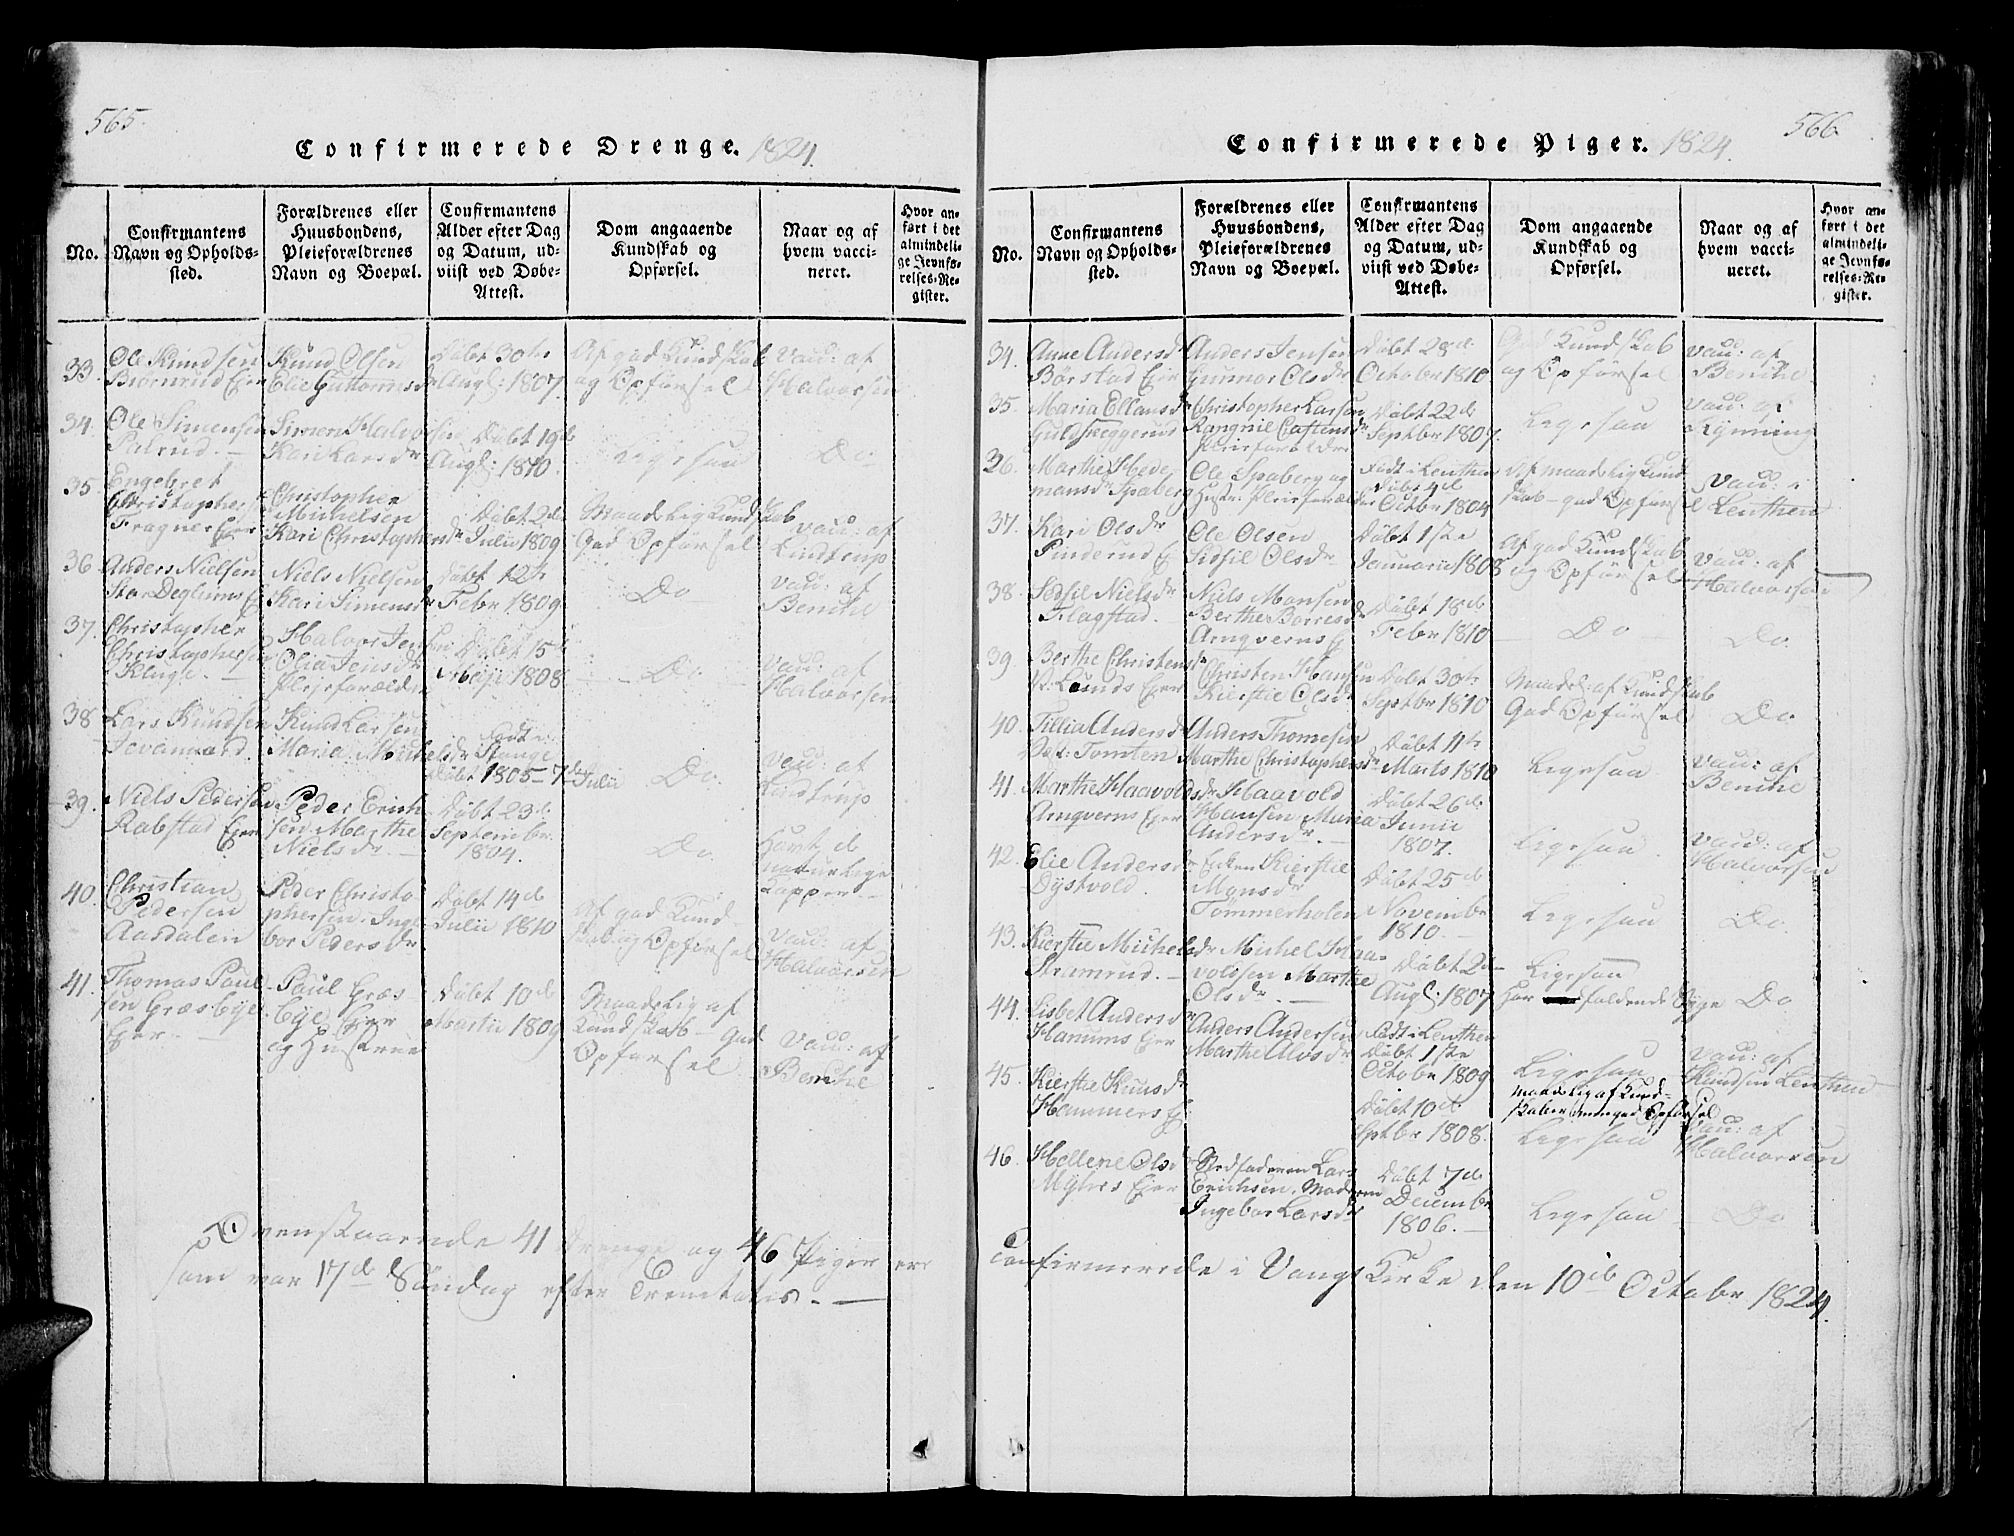 565.
Confirmerede Drenge. 1824.
No.
Confirmantens
Navn og Opholds-
sted.
Forældrenes eller
Huusbondens,
Pleieforældrenes
Navn og Boepæl.
Confirmantens
Alder efter Dag
og Datum, ud-
viist ved Døbe-
Attest.
Dom angaaende
Kundskab og
Opførsel.
Naar og af
hvem vacci-
neret.
Hvor an-
ført i det
almindeli-
ge Jevnfø-
relses-Re-
gister.
33.
Ole Knudsen
Biørnrud Eier
Knud Olsen
Elie Guttormsdr
Døbt 30te
Augs: 1807.
Af god Kundskab
og Opførsel
Vacc: af
Halvorsen
34.
Ole Simensen
Pilrud. —
Simen Halvorsen
Kari Larsdr
Døbt 19d
Augs: 1810.
Ligesaa
Do
35.
Engebret
Christophersen
Fragner Eier
Christopher
Michelsen
Kari Christophersdr
Døbt 2de
Julii 1809
Maadelig Kundskab
God Opførsel
Vacc: af
Lindtrup
36.
Anders Nielsen
Stor Deglums E
Niels Nielsen
Kari Simensdr
Døbt 12te
Febr 1809
Do
Vacc: af
Benche
37.
Christopher
Christophersen
Kluge. —
Halvor Jensen
Olia Jensdr
Pleieforældre
Døbt 15d
Maji 1808
Do
Vacc: af
Halvorsen
38
Lars Knudsen
Knud Larsen
Maria Michelsdr
Født i
Stange
Døbt 1805 – 7de Julii
Do.
Vacc: af
Lindtrup
39.
Niels Pedersen
Rabstad Eier
Peder Erich-
sen Marthe
Nielsdr. —
Døbt 23d.
Septembr.
1804.
Do.
Havt d
naturlige
Kopper —
40.
Christian
Pedersen
Aasdalen
Peder Christo-
phersen. Inge-
bor Pedersdr
Døbt 14d
Julii 1810
Af god Kund-
skab og Opførsel
Vacc: af
Halvorsen
41.
Thomas Paul-
sen Græsbye
Eier. —
Paul Græs-
bye Eier
og Hustrue
Døbt 10d
Martii 1809
Maadelig af
Kundskab – God
Opførsel
Vacc: af
Benche
Ovenstaaende 41 Drenge og 46 Piger ere
som var 17de Søndag efter Trenitatis. —
566.
Confirmerede Piger. 1824.
No.
Confirmantens
Navn og Opholds-
sted.
Forældrenes eller
Huusbondens,
Pleieforældrenes
Navn og Boepæl.
Confirmantens
Alder efter Dag
og Datum, ud-
viist ved Døbe-
Attest.
Dom angaaende
Kundskab og
Opførsel.
Naar og af
hvem vacci-
neret.
Hvor an-
ført i det
almindeli-
ge Jevnfø-
relses-Re-
gister.
34.
Anne Andersdr
Børstad Eier
Anders Jensen
Gunnor Olsdr
Døbt 28d.
Octobr 1810
God Kundskab
og Opførsel
Vacc: af
Benche
35.
Maria Ellansdr
Guldskeggerud
Christopher Larsen
Rangnil Castensdr
Pleieforældre
Døbt 22d
Septbr 1807.
Ligesaa
Vacc: af
Rynning
36.
Marthe Hede-
mansdr Spaberg
Ole Spaberg og
Hustr: Pleieforældre
Født i Leuthen
Døbt 4d
Octbr 1804
Af maadelig Kund-
skab – god Opførsel
Vacc: i
Leuthen
37.
Kari Olsdr
Pinderud E
Ole Olsen
Sidsil Olsdr
Døbt 1ste
Januarii 1808
Af god Kundskab
og Opførsel
Vacc: af
Halvorsen
38.
Sidsil Nielsdr
Flagstad. —
Niels Monsen
Berthe Borresdr
Arnqverns E
Døbt 18d.
Febr 1810
Do
Do.
39.
Berthe Christensdr
V. Lunds Eier
Christen Hansen
Kierstie Olsdr
Døbt 30te
Septbr 1810
Maadel: af Kundskab
God Opførsel
Do.
40.
Tillia Andersdr
Tomten
Anders Thomesen
Marthe Christophersdr
Døbt 11te
Marts 1810
Ligesaa
Vacc: af
Benche
41.
Marthe Haavoldsdr
Arnqverns Eier
Haavold
Hansen Maria
Andersdr. —
Døbt 26d
Junii
1807.
Ligesaa.
Vacc: af
Halvorsen
42.
Elie Andersdr
Dystvold.
Enken Kierstie
Monsdr
Tømmerholen
Døbt 25d
Novembr
1810. —
Ligesaa
Do.
43.
Kierstie Michelsdr
Stramrud. —
Michel Haa-
voldsen Marthe
Olsdr. —
Døbt 2d
Augs: 1807
Ligesaa
Har faldende Syge
Do
44.
Lisbet Andersdr
Hanums Eier
Anders Andersen
Marthe Alvsdr
Født i Leuthen
Døbt 1ste
Octobr 1809
Ligesaa
Vacc: af
Knudsen Leuthen
45.
Kierstie Knusdr
Hammers E
Døbt 10d
Sptbr 1808.
Maadelig af Kund-
skaber men god Opførsel
Ligesaa
Vacc: af
Halvorsen
46.
Hellene Olsdr
Myhrs Eier
Stedfaderen Lars
Erichsen. Moderen
Ingebor Larsdr
Døbt 7d.
Decembr
1806. —
Ligesaa
Do
Confirmerede i Vangs Kirke den 10d Octobr 1824.